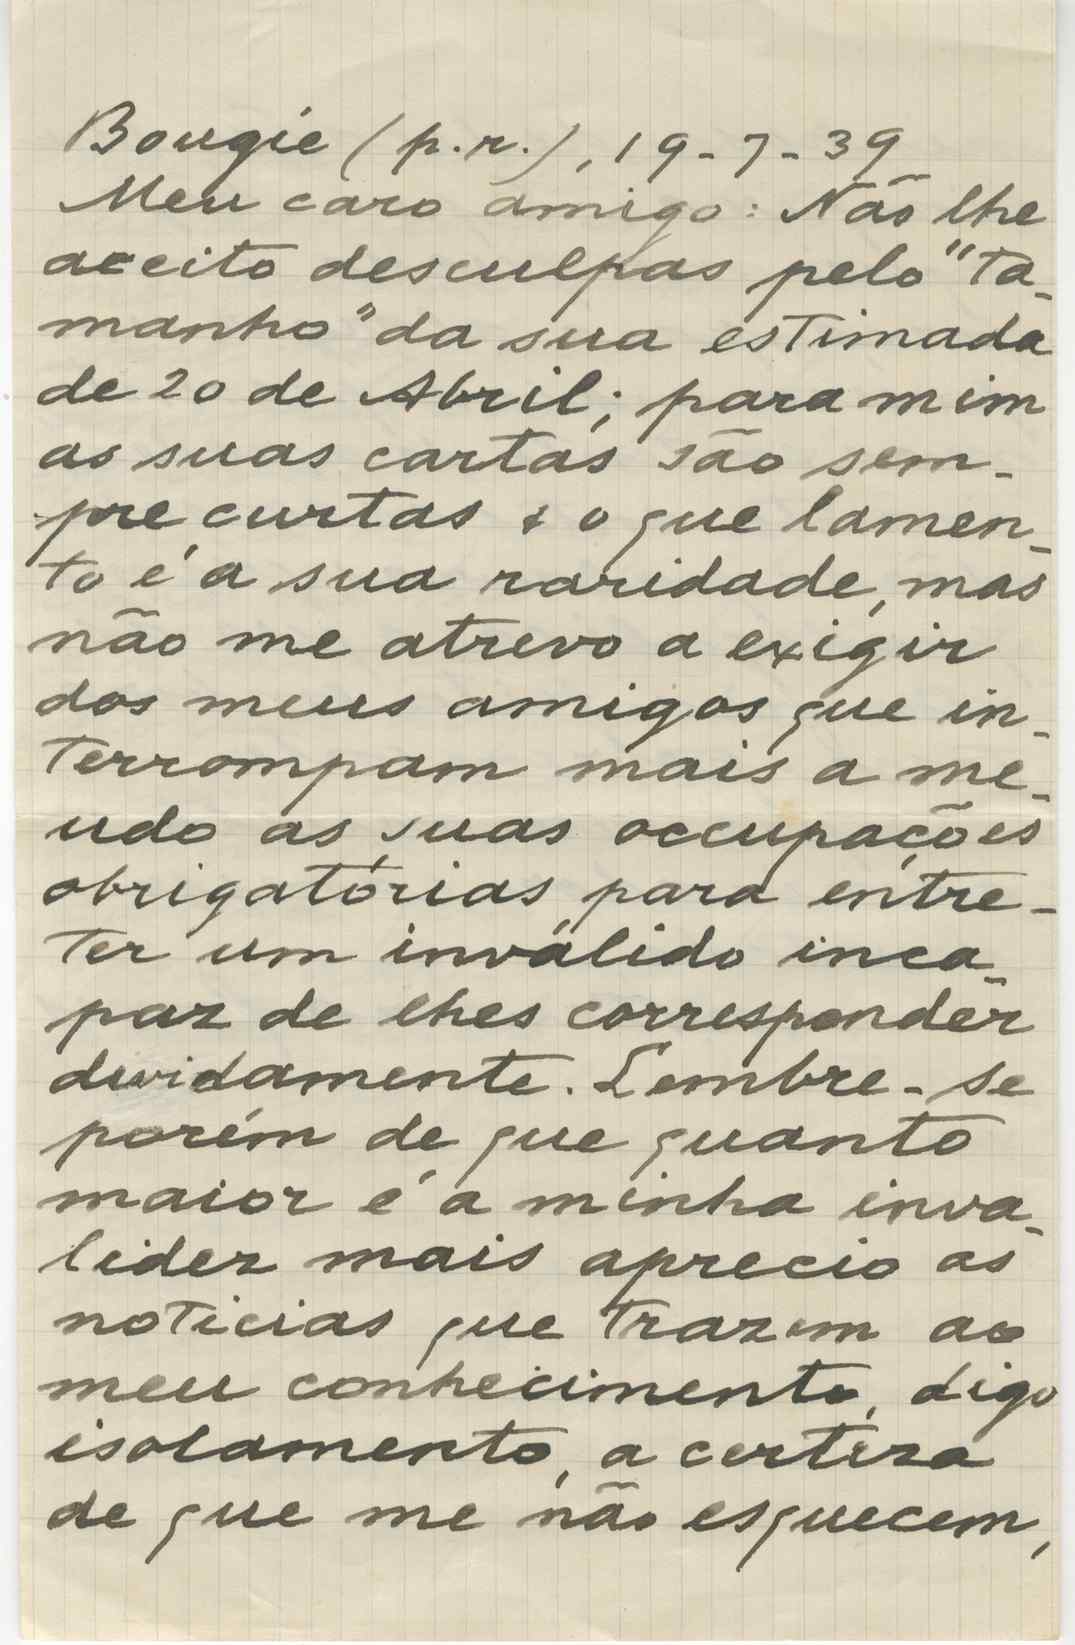 Bougie (p.r.), 19-7-39
Meu caro amigo: Não lhe
aceito desculpas pelo "ta-
manho" da sua estimada
de 20 de Abril; para mim
as suas cartas são sem-
pre curtas & o que lamen-
to é a sua raridade, mas
não me atrevo a exigir
dos meus amigos que in-
terrompam mais a me-
udo as suas occupações
obrigatórias, para entre-
ter um inválido inca-
paz de lhes corresponder
dividamente. Lembre-se
porém de que quanto
maior é a minha inva-
lidez mais aprecio as
noticias que trazem ao
meu conhecimento, digo
isolamento, a certeza
de que me não esquecem,